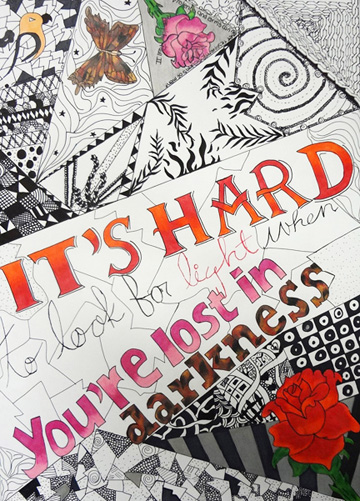 IT'S HARD
to look for light when
You're lost in
darkness